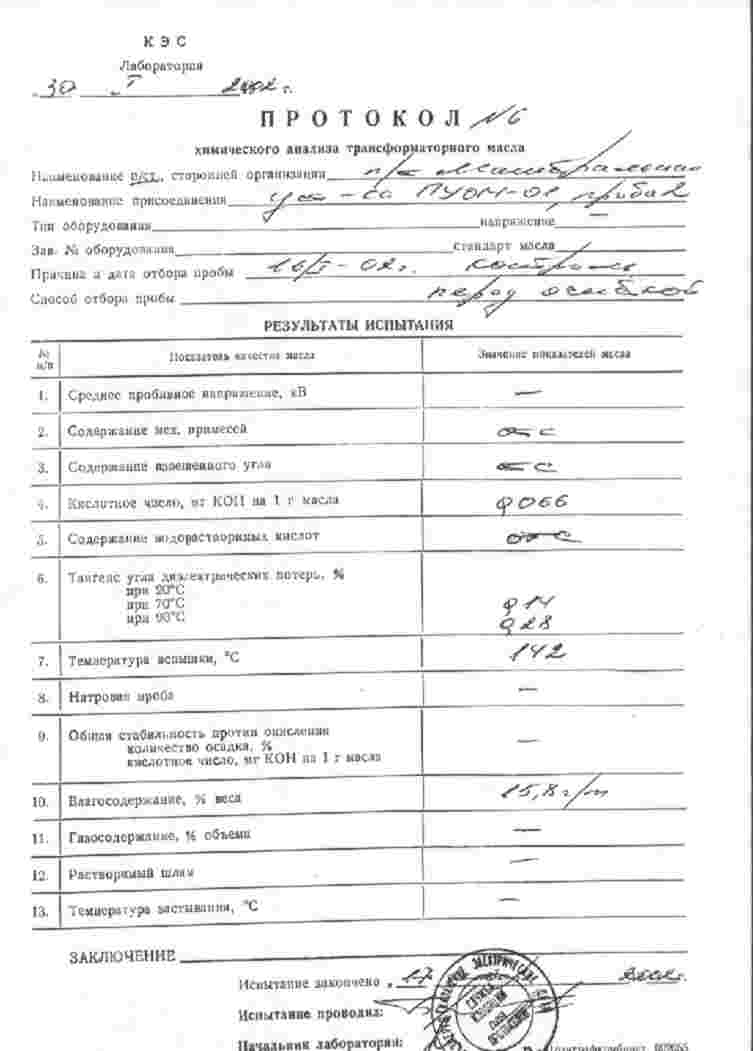 КЭС
Лаборатория
„30 I 2002 г.
ПРОТОКОЛ №6
химического анализа трансформаторного масла
Наименование п/ст., сторонней организации п/с
Наименование присоединения уст-ка ПУОМ-01, проба 2
Тип оборудования напряжение —
Зав. № оборудования стандарт масла
Причина и дата отбора пробы 16/I-02г. контроль
Способ отбора пробы перед
РЕЗУЛЬТАТЫ ИСПЫТАНИЯ
№ п/п Показатель качества масла Значение показателей масла
1. Среднее пробивное напряжение, кВ —
2. Содержание мех. примесей отс
3. Содержание взвешенного угля отс
4. Кислотное число, мг КОН на 1 г масла 0,066
5. Содержание водорастворимых кислот отс
6. Тангенс угла диэлектрических потерь, %
при 20°С
при 70°С 0,14
при 90°С 0,28
7. Температура вспышки, °С 142
8. Натровая проба —
9. Общая стабильность против окисления
количество осадка, % —
кислотное число, мг КОН на 1 г масла
10. Влагосодержание, % веса 15,8 г/т
11. Газосодержание, % объема —
12. Растворимый шлам —
13. Температура застывания, °С —
ЗАКЛЮЧЕНИЕ
Испытание закончено „17 2002г.
Испытание проводил:
Начальник лаборатории: